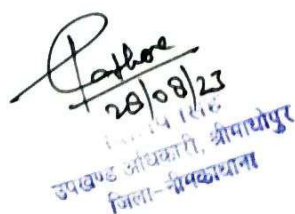 Rathore
28/08/23
उपखण्ड अधिकारी, श्रीमाधोपुर
जिला-नीमकाथाना